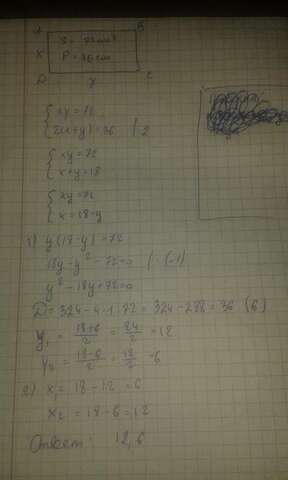 A B
S = 72 cm²
x P = 36 cm
D y C
{ xy = 72
{ 2(x+y) = 36 | :2
{ xy = 72
{ x+y = 18
{ xy = 72
{ x = 18-y
1) y(18-y) = 72
18y - y² - 72 = 0 | ·(-1)
y² - 18y + 72 = 0
D = 324 - 4·1·72 = 324 - 288 = 36 (6)
y₁ = 18+6/2 = 24/2 = 12
y₂ = 18-6/2 = 12/2 = 6
2) x₁ = 18 - 12 = 6
x₂ = 18 - 6 = 12
Ответ: 12, 6